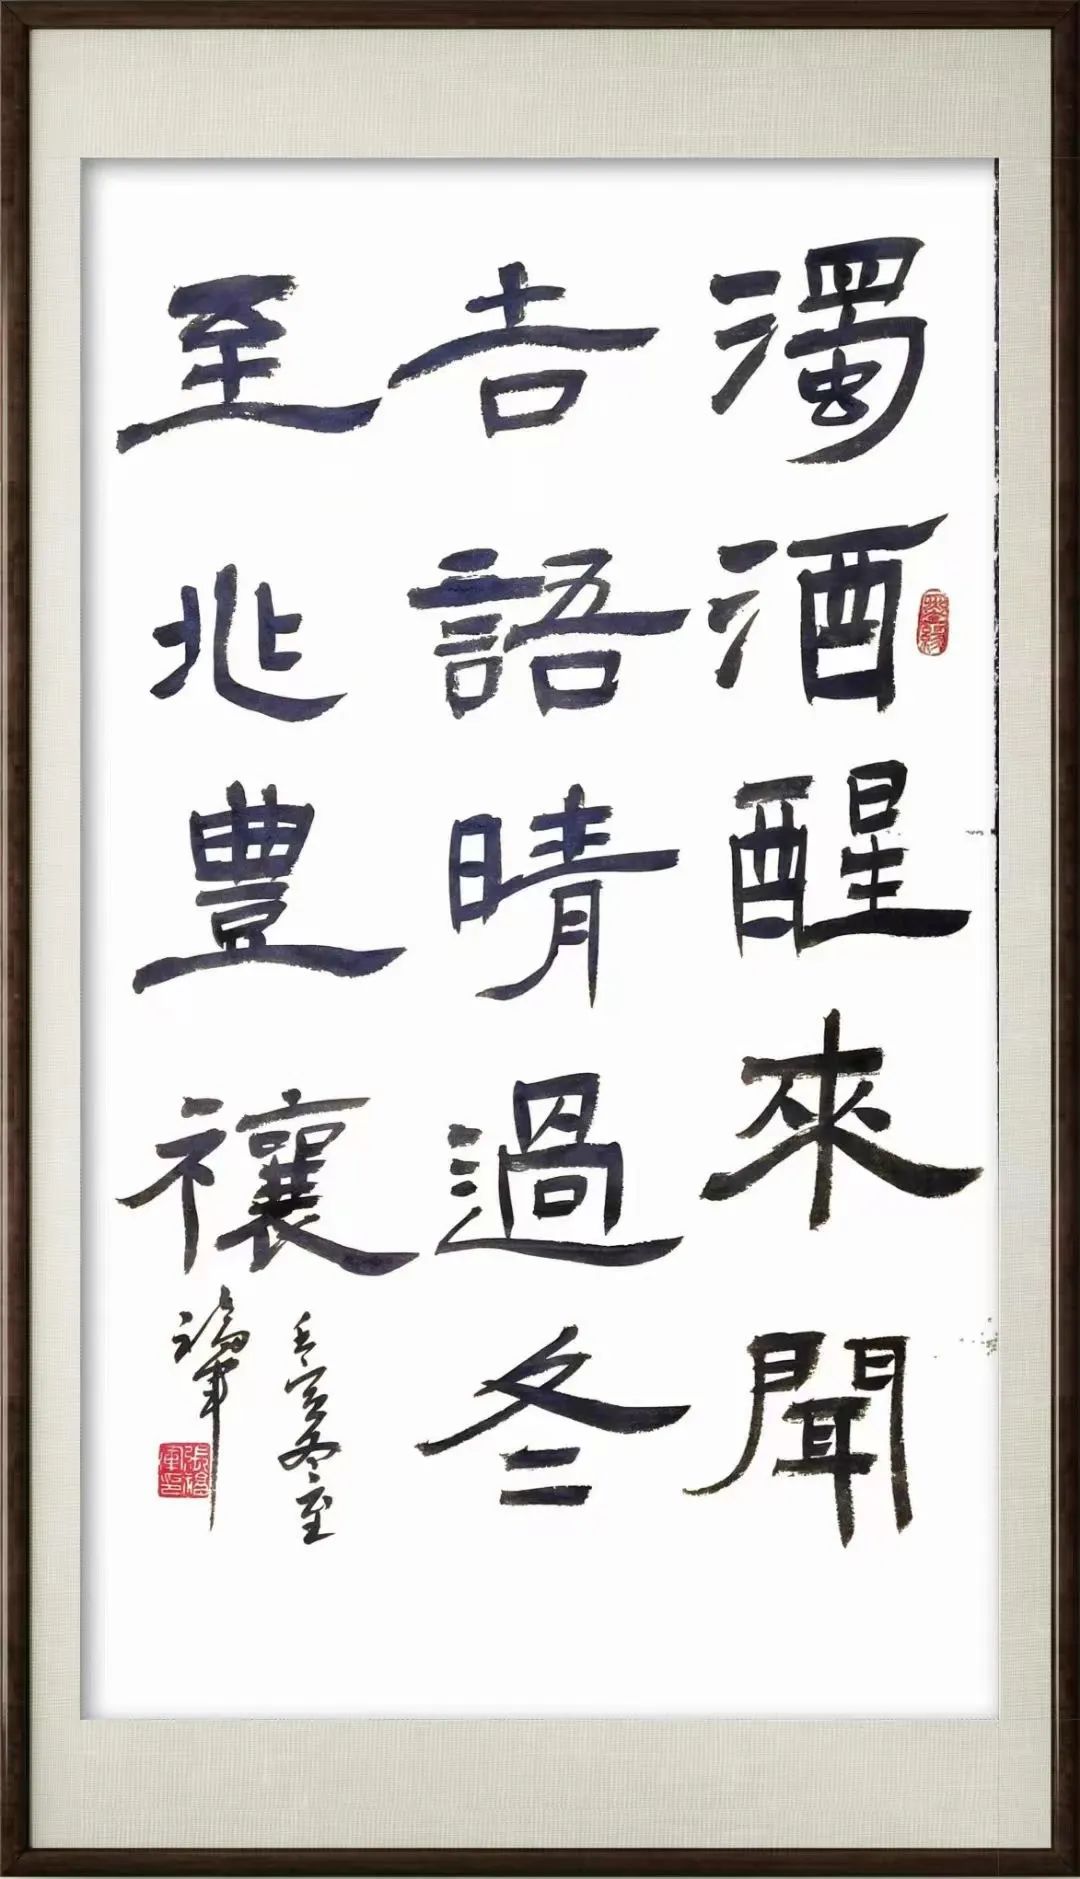 濁酒醒來聞
吉語晴過冬
至兆豐禳
壬寅冬至
福軍
張福軍印